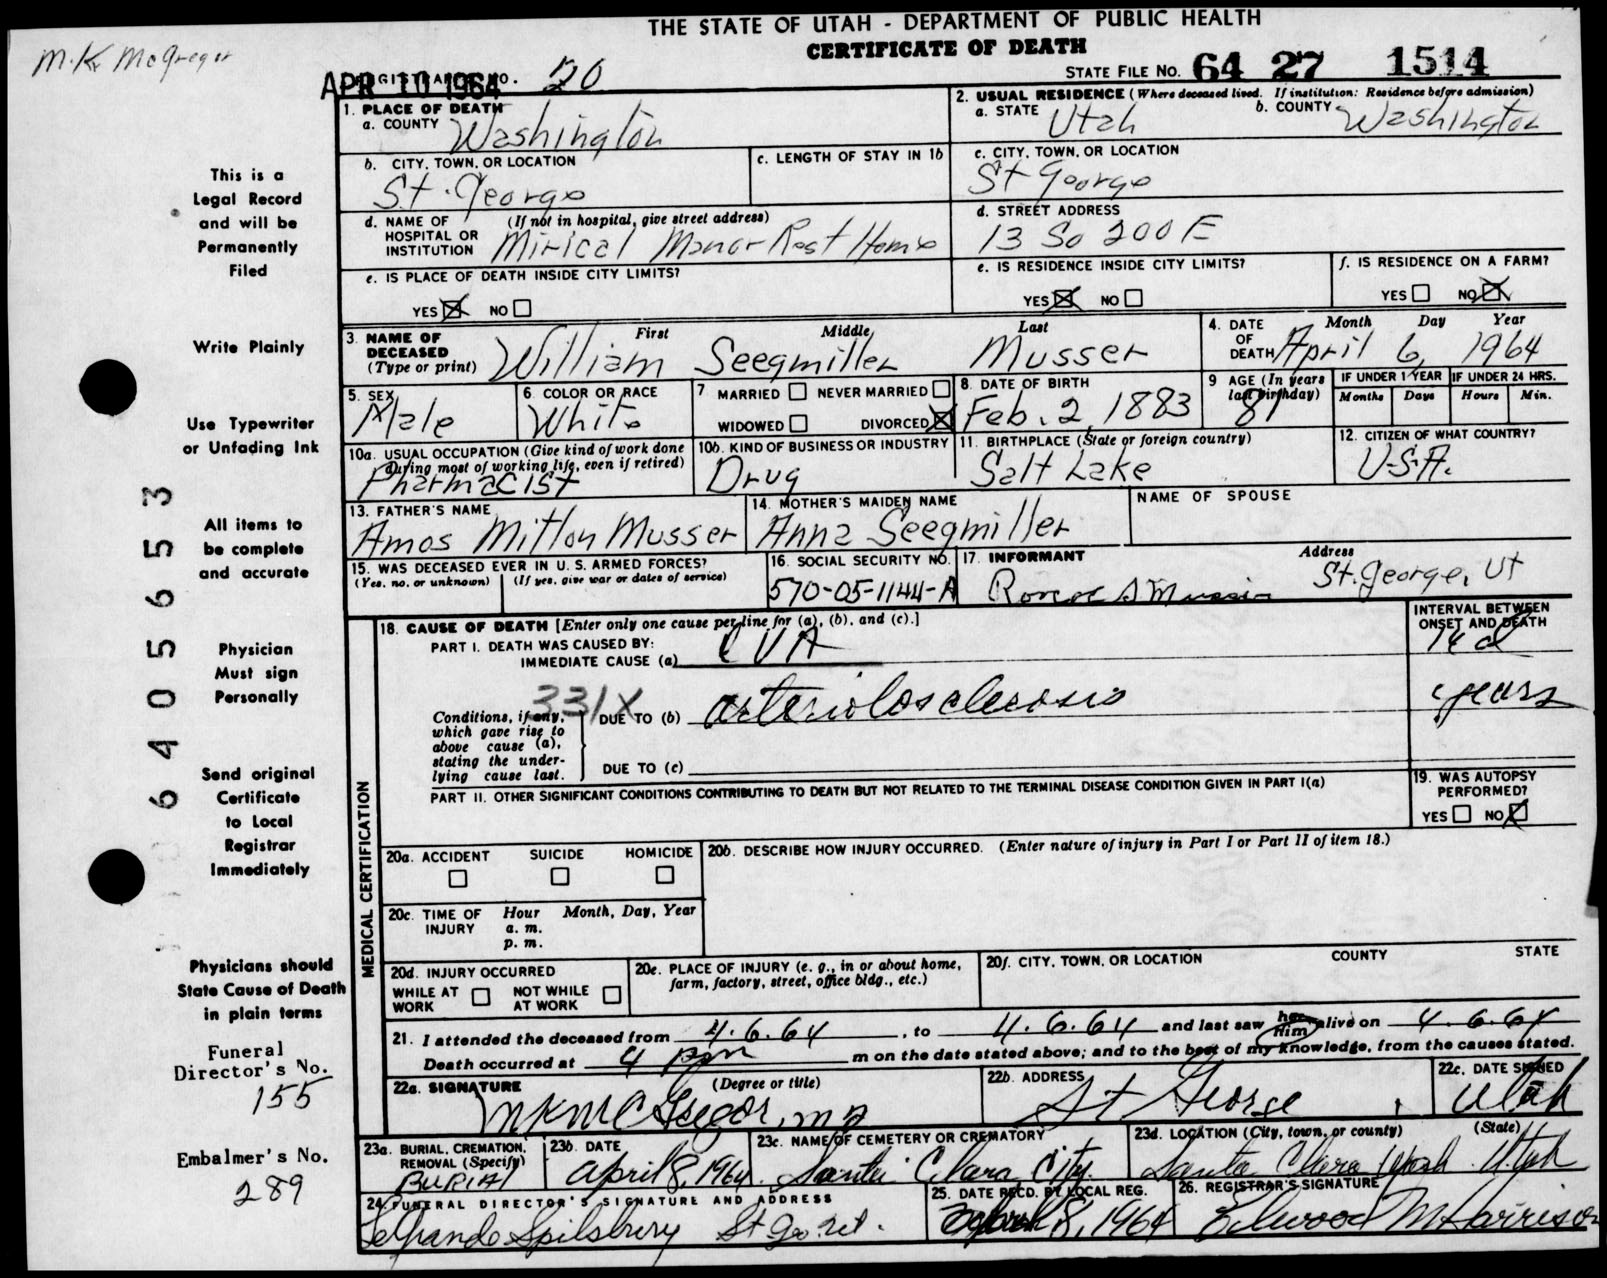 THE STATE OF UTAH - DEPARTMENT OF PUBLIC HEALTH
CERTIFICATE OF DEATH
M.K. McGregor
APR 10 1964
REGISTRAR'S NO. 20
STATE FILE NO. 64 27 1514
1. PLACE OF DEATH
a. COUNTY Washington
2. USUAL RESIDENCE (Where deceased lived. If institution: Residence before admission)
a. STATE Utah b. COUNTY Washington
b. CITY, TOWN, OR LOCATION
St. George
c. LENGTH OF STAY IN 1b
c. CITY, TOWN, OR LOCATION
St George
d. NAME OF HOSPITAL OR INSTITUTION (If not in hospital, give street address)
Mirical Manor Rest Home
d. STREET ADDRESS
13 So 200 E
e. IS PLACE OF DEATH INSIDE CITY LIMITS?
YES NO
e. IS RESIDENCE INSIDE CITY LIMITS?
YES NO
f. IS RESIDENCE ON A FARM?
YES NO
3. NAME OF DECEASED (Type or print)
First Middle Last
William Seegmiller Musser
4. DATE OF DEATH
Month Day Year
April 6, 1964
5. SEX
Male
6. COLOR OR RACE
White
7 MARRIED NEVER MARRIED
WIDOWED DIVORCED
8. DATE OF BIRTH
Feb. 2, 1883
9 AGE (In years last birthday)
81
IF UNDER 1 YEAR
Months Days
IF UNDER 24 HRS.
Hours Min.
10a. USUAL OCCUPATION (Give kind of work done during most of working life, even if retired)
Pharmacist
10b. KIND OF BUSINESS OR INDUSTRY
Drug
11. BIRTHPLACE (State or foreign country)
Salt Lake
12. CITIZEN OF WHAT COUNTRY?
U.S.A.
13. FATHER'S NAME
Amos Milton Musser
14. MOTHER'S MAIDEN NAME
Anna Seegmiller
NAME OF SPOUSE
15. WAS DECEASED EVER IN U. S. ARMED FORCES?
(Yes, no, or unknown) (If yes, give war or dates of service)
16. SOCIAL SECURITY NO.
570-05-1144-A
17. INFORMANT Address
St. George, Ut
18. CAUSE OF DEATH [Enter only one cause per line for (a), (b), and (c).]
INTERVAL BETWEEN ONSET AND DEATH
PART I. DEATH WAS CAUSED BY:
IMMEDIATE CAUSE (a) CVA
331X
Conditions, if any, which gave rise to above cause (a), stating the underlying cause last.
DUE TO (b) arteriolosclerosis years
DUE TO (c)
PART II. OTHER SIGNIFICANT CONDITIONS CONTRIBUTING TO DEATH BUT NOT RELATED TO THE TERMINAL DISEASE CONDITION GIVEN IN PART I(a)
19. WAS AUTOPSY PERFORMED?
YES NO
MEDICAL CERTIFICATION
20a. ACCIDENT SUICIDE HOMICIDE
20b. DESCRIBE HOW INJURY OCCURRED. (Enter nature of injury in Part I or Part II of item 18.)
20c. TIME OF INJURY
Hour Month, Day, Year
a. m.
p. m.
20d. INJURY OCCURRED
WHILE AT WORK NOT WHILE AT WORK
20e. PLACE OF INJURY (e. g., in or about home, farm, factory, street, office bldg., etc.)
20f. CITY, TOWN, OR LOCATION COUNTY STATE
21. I attended the deceased from 4.6.64, to 4.6.64 and last saw her him alive on 4.6.64
Death occurred at 4 pm m on the date stated above; and to the best of my knowledge, from the causes stated.
22a. SIGNATURE (Degree or title)
MK McGregor, MD
22b. ADDRESS
St George, Utah
22c. DATE SIGNED
23a. BURIAL, CREMATION, REMOVAL (Specify)
BURIAL
23b. DATE
April 8, 1964
23c. NAME OF CEMETERY OR CREMATORY
Santa Clara City
23d. LOCATION (City, town, or county) (State)
Santa Clara Wash Utah
24. FUNERAL DIRECTOR'S SIGNATURE AND ADDRESS
Spilsbury
25. DATE RECD. BY LOCAL REG.
April 8, 1964
26. REGISTRAR'S SIGNATURE
Elwood M Harrison
This is a
Legal Record
and will be
Permanently
Filed
Write Plainly
Use Typewriter
or Unfading Ink
All items to
be complete
and accurate
Physician
Must sign
Personally
Send original
Certificate
to Local
Registrar
Immediately
Physicians should
State Cause of Death
in plain terms
Funeral
Director's No.
155
Embalmer's No.
289
64056553